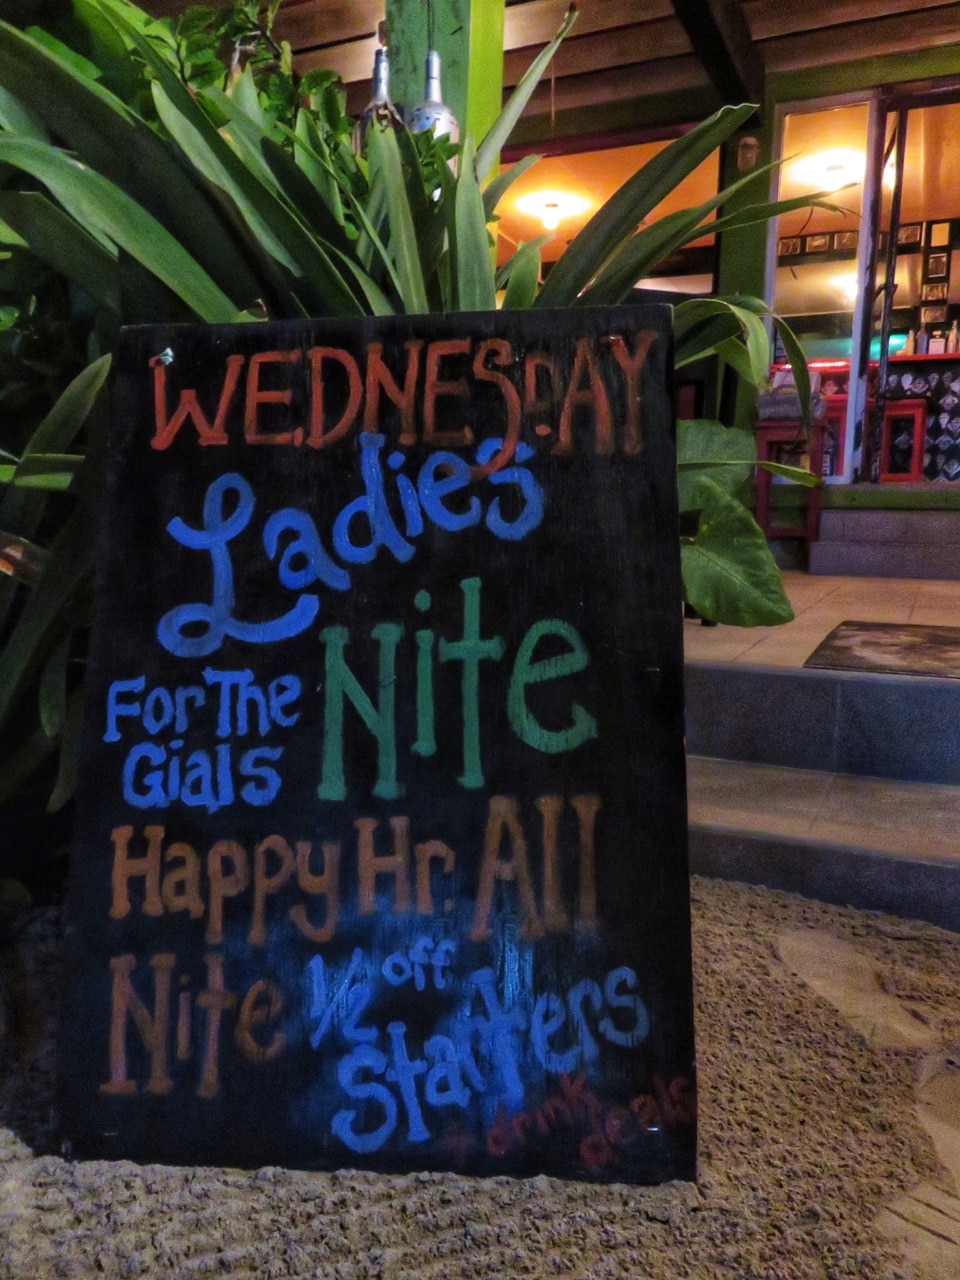 WEDNESDAY
Ladies
Nite
For The
Gials
Happy Hr. All
Nite
1/2 off
Starters
+ drink
deals